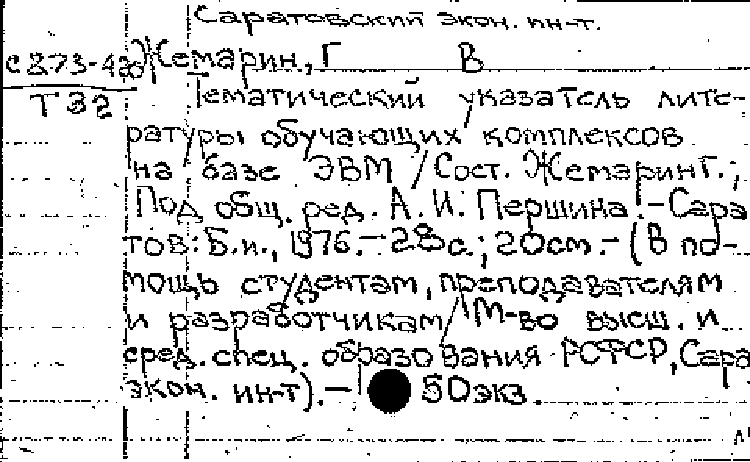 Саратовский экон. ин-т.
Жемарин, Г В
С873-4
Т 32
Тематический указатель лите-
ратуры обучающих комплексов
на базе ЭВМ / Сост. Жемарин Г.;
Под общ. ред. А. И. Першина. - Сара
тов: Б.и., 1976. - 28с.; 20см. - (В по-
мощь студентам, преподавателям
и разработчикам / М-во высш. и
сред. спец. образования РСФСР, Сара
экон. ин-т). - 50экз.